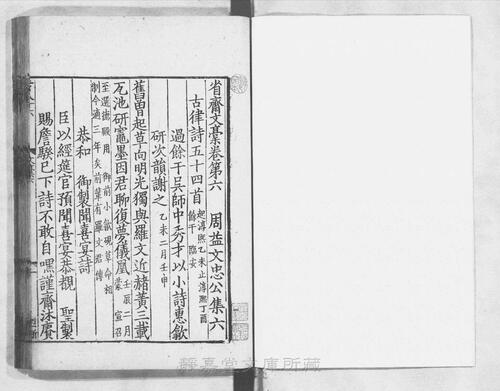 省齋文藁卷第六　周益文忠公集六
古律詩五十四首 起淳熙乙未止淳熙丁酉 餘干 臨安
過餘干吳師中秀才以小詩惠歙
研次韻謝之 乙未二月壬申
舊曾起草向明光獨與羅文近赭黃三載
瓦池研竈墨因君聊復夢儀凰 壬辰二月蒙宣召
至選德殿用御前小歙硯草命相
制今適三年矣前輩有羅文君傳
恭和　御製聞喜宴詩
臣以經筵官預聞喜宴恭覩　聖製
賜詹騤已下詩不敢自嘿謹齋沐賡
靜嘉堂文庫所藏